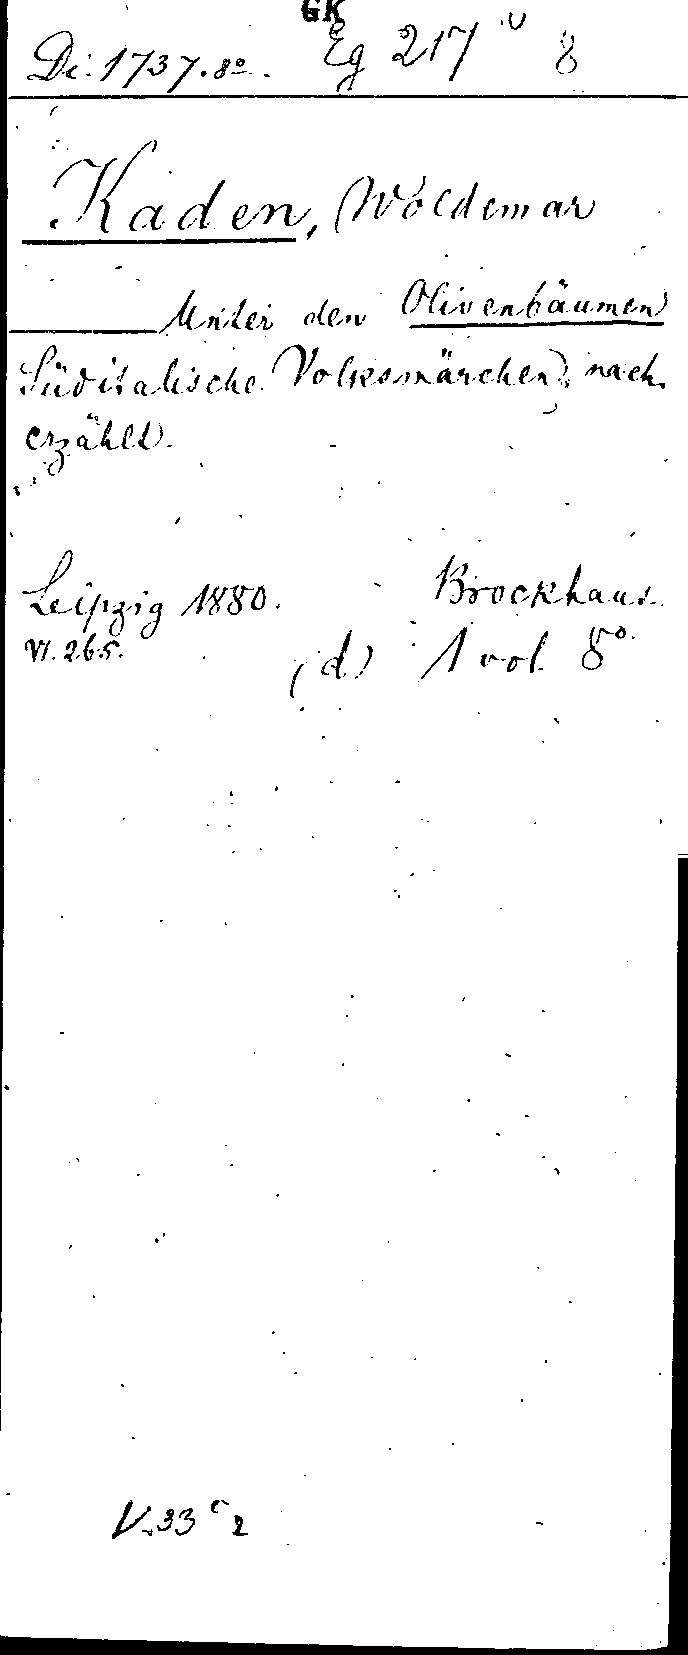 GK
Di. 1737. 8º. Eg 217 u 8
Kaden, Woldemar
Unter den Olivenbäumen
Süditalische Volksmärchen, nach
erzählt.
Leipzig 1880. Brockhaus
VI. 265. (d) 1 vol. 8º
V. 33 c 2